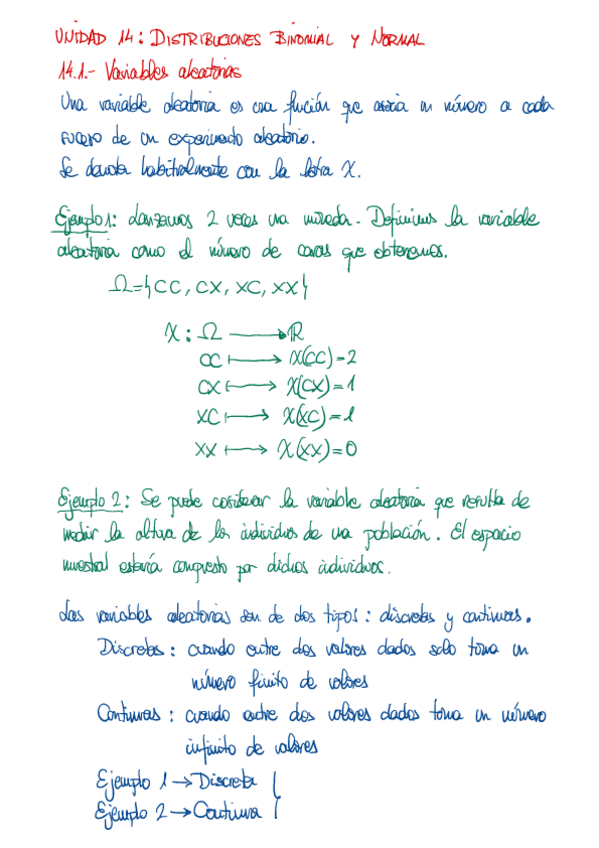 UNIDAD 14: DISTRIBUCIONES BINOMIAL Y NORMAL
14.1.- Variables aleatorias
Una variable aleatoria es una función que asocia un número a cada
suceso de un experimento aleatorio.
Se denota habitualmente con la letra X.
Ejemplo 1: Lanzamos 2 veces una moneda. Definimos la variable
aleatoria como el número de caras que obtenemos.
Ω={CC, CX, XC, XX}
X: Ω ⟶ ℝ
CC ⟼ X(CC)=2
CX ⟼ X(CX)=1
XC ⟼ X(XC)=1
XX ⟼ X(XX)=0
Ejemplo 2: Se puede considerar la variable aleatoria que resulta de
medir la altura de los individuos de una población. El espacio
muestral estaría compuesto por dichos individuos.
Las variables aleatorias son de dos tipos: discretas y continuas.
Discretas: cuando entre dos valores dados solo toma un
número finito de valores
Continuas: cuando entre dos valores dados toma un número
infinito de valores
Ejemplo 1 → Discreta
Ejemplo 2 → Continua